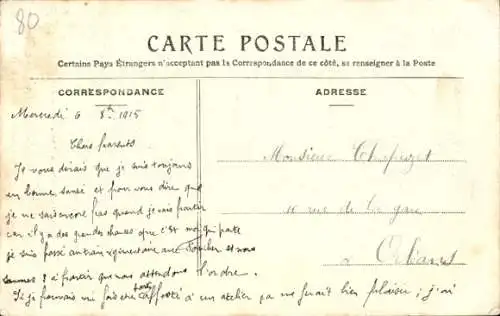 80
CARTE POSTALE
Certains Pays Étrangers n'acceptant pas la Correspondance de ce côté, se renseigner à la Poste
CORRESPONDANCE
ADRESSE
Mercredi 6 8bre 1915
Chers parents
Je vous dirais que je suis toujours
en bonne santé et pour vous dire que
je ne sais encore pas quand je vais partir
car il y a des grandes chances que c'est moi qui parte
je suis passé au train régimentaire avec et nous
sommes 8 à partir que nous attendons l'ordre.
Si je pouvais en fois être affecté à un atelier ça me ferait bien plaisir ; j'ai
Monsieur
10 rue de la gare
à Orléans